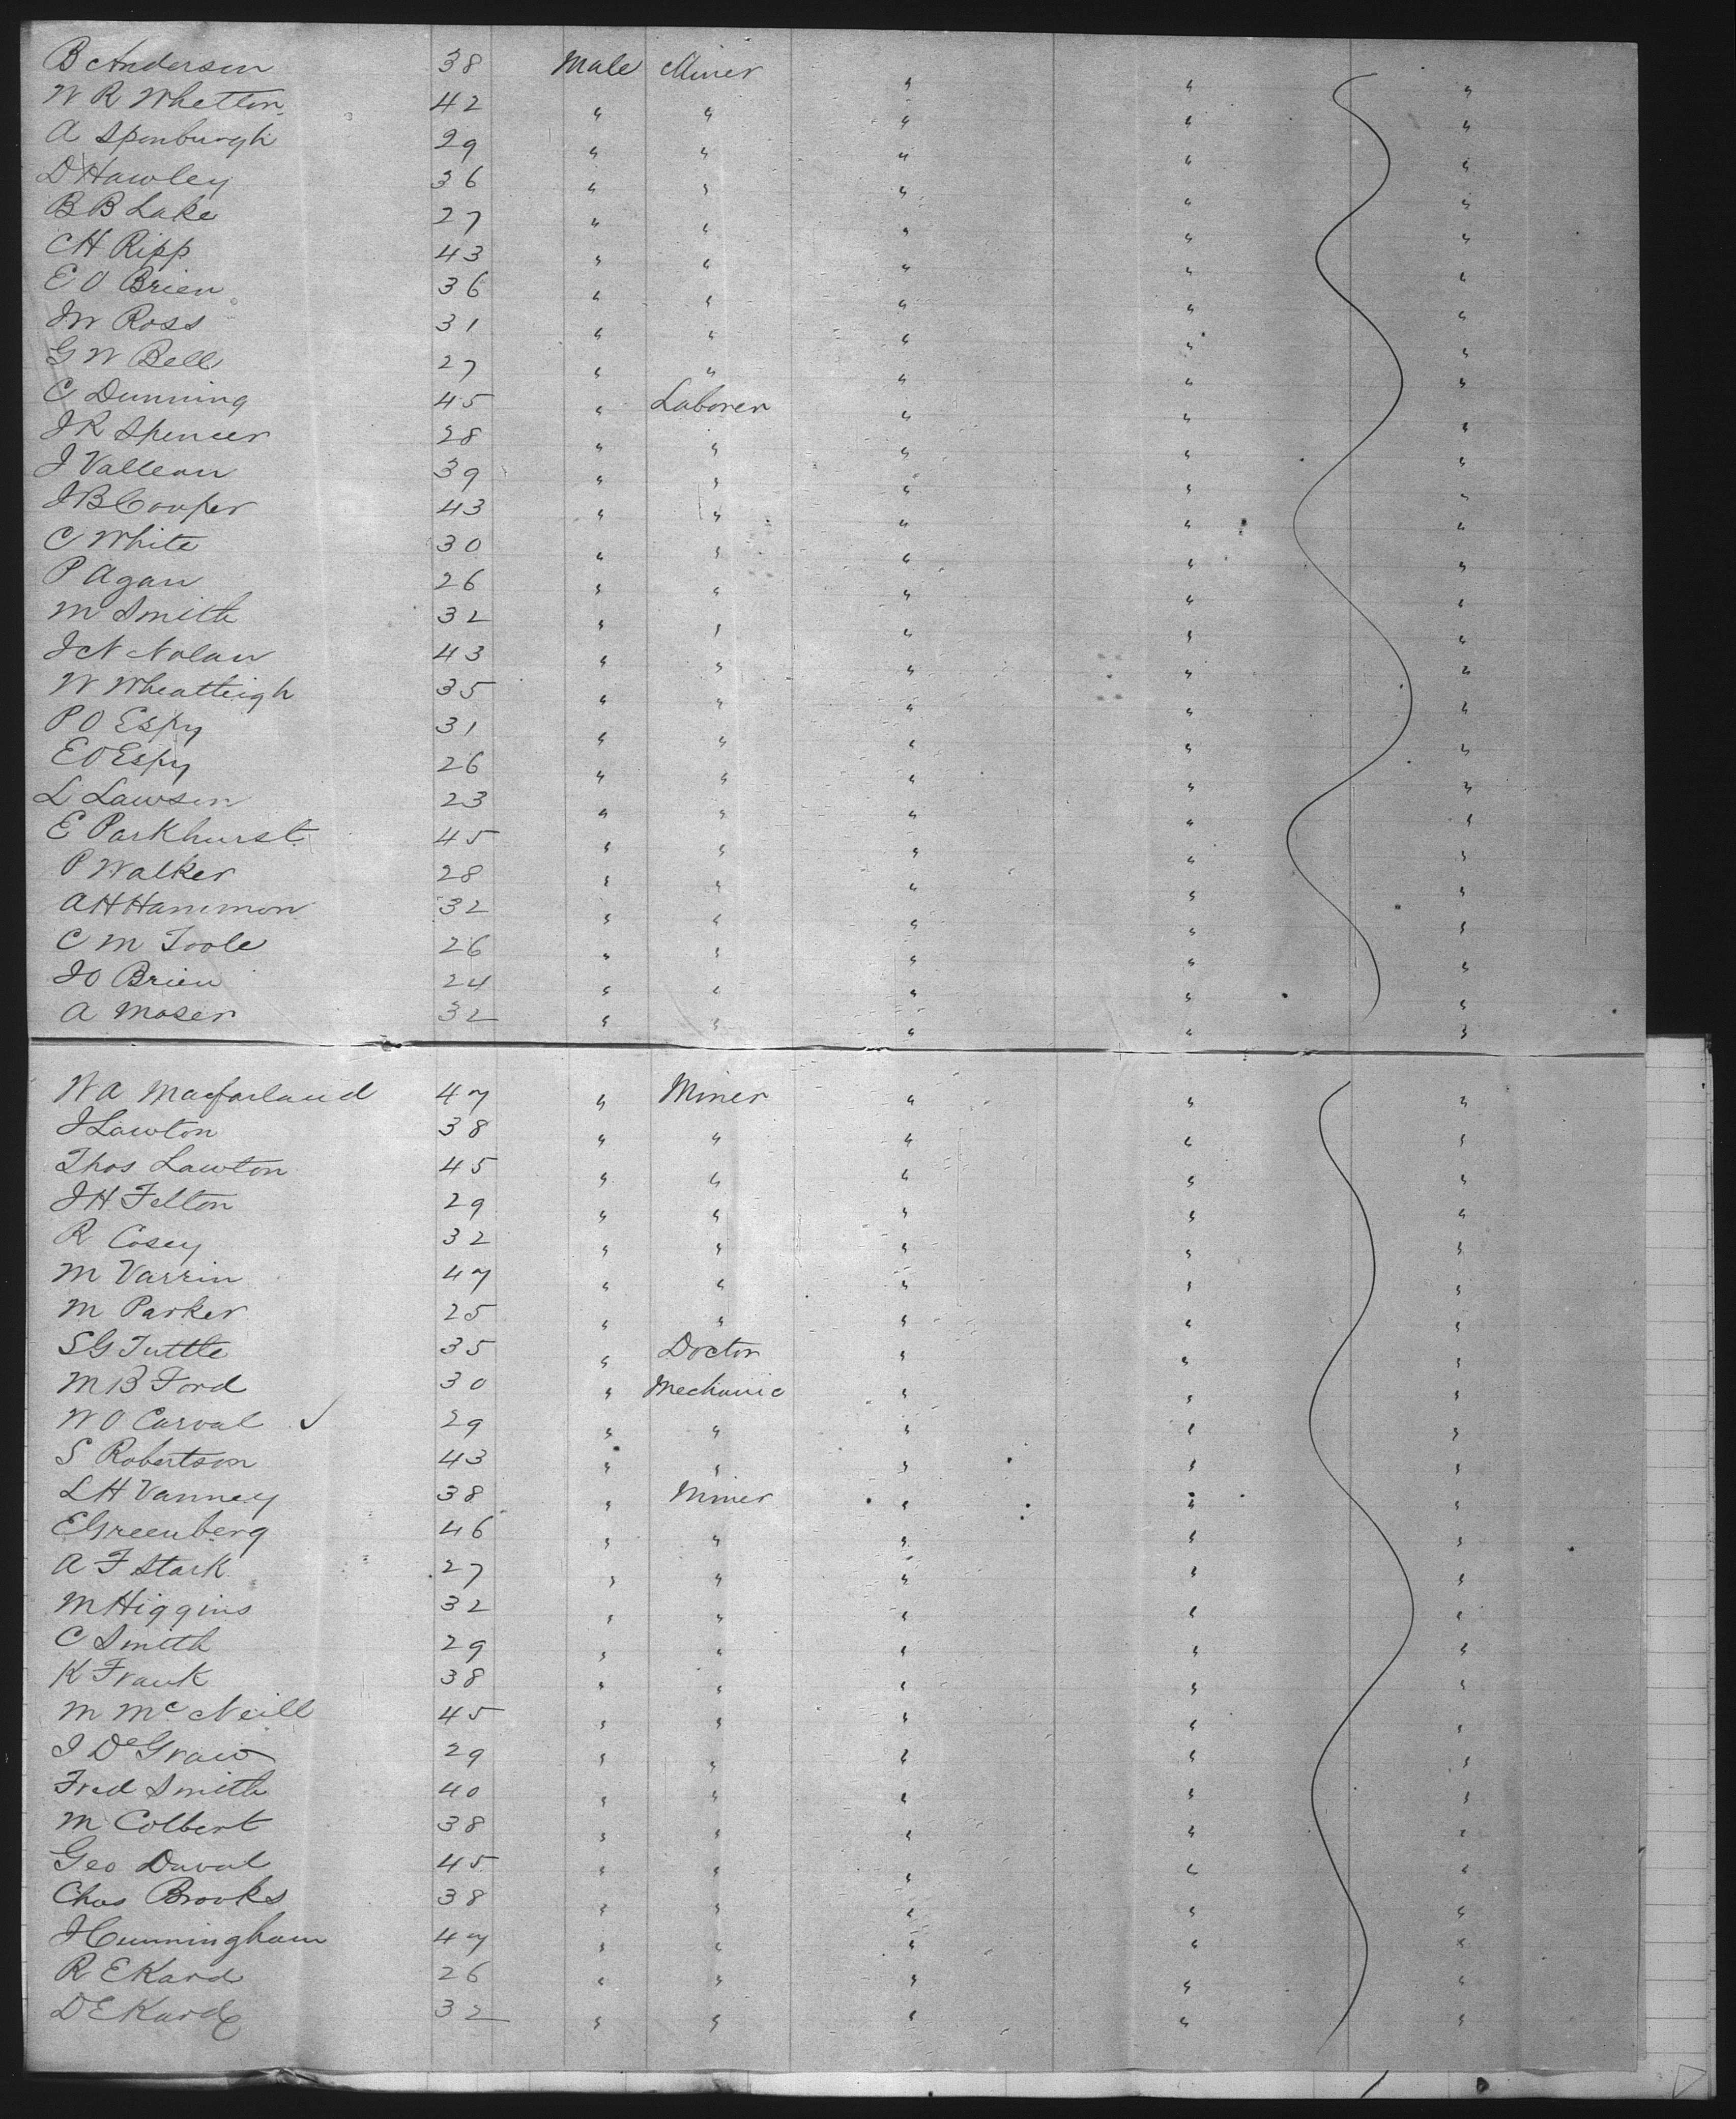 B Anderson 38 Male Miner " " "
W R Whetton 42 " " " " "
A Sponburgh 29 " " " " "
D Hawley 36 " " " " "
B B Lake 27 " " " " "
C H Ripp 43 " " " " "
E O Brien 36 " " " " "
J W Ross 31 " " " " "
G W Bell 27 " " " " "
C Dunning 45 " Laborer " " "
J R Spencer 28 " " " " "
J Valleau 39 " " " " "
J B Cooper 43 " " " " "
C White 30 " " " " "
P Agan 26 " " " " "
M Smith 32 " " " " "
J N Nolan 43 " " " " "
W Wheatleigh 35 " " " " "
P O Espy 31 " " " " "
E O Espy 26 " " " " "
L Lawson 23 " " " " "
E Parkhurst 45 " " " " "
P Walker 28 " " " " "
A H Hammon 32 " " " " "
C M Toole 26 " " " " "
J O Brien 24 " " " " "
A Moser 32 " " " " "
W A Macfarland 47 " Miner " " "
J Lawton 38 " " " " "
Thos Lawton 45 " " " " "
J H Felton 29 " " " " "
R Cosey 32 " " " " "
M Varrin 47 " " " " "
M Parker 25 " " " " "
S G Tuttle 35 " Doctor " " "
M B Ford 30 " Mechanic " " "
W O Carval ✓ 29 " " " " "
S Robertson 43 " " " " "
L H Vanney 38 " Miner " " "
E Greenberg 46 " " " " "
A F Stark 27 " " " " "
M Higgins 32 " " " " "
C Smith 29 " " " " "
K Frank 38 " " " " "
M McNeill 45 " " " " "
J DeGraw 29 " " " " "
Fred Smith 40 " " " " "
M Colbert 38 " " " " "
Geo Duval 45 " " " " "
Chas Brooks 38 " " " " "
J Cunningham 47 " " " " "
R E Kard 26 " " " " "
D E Kard 32 " " " " "